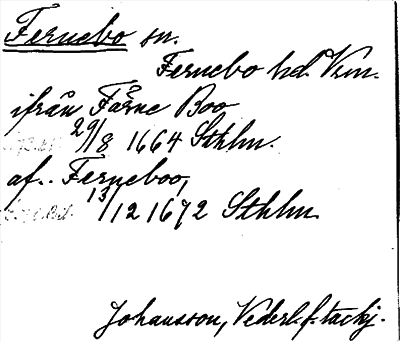 Fernebo sn.
Fernebo hd. Vrm.
ifrån Färne Boo
29/8 1664 Sthlm.
af.. Ferneboo,
13/12 1672 Sthlm.
Johansson, Vederl. f. tackj.